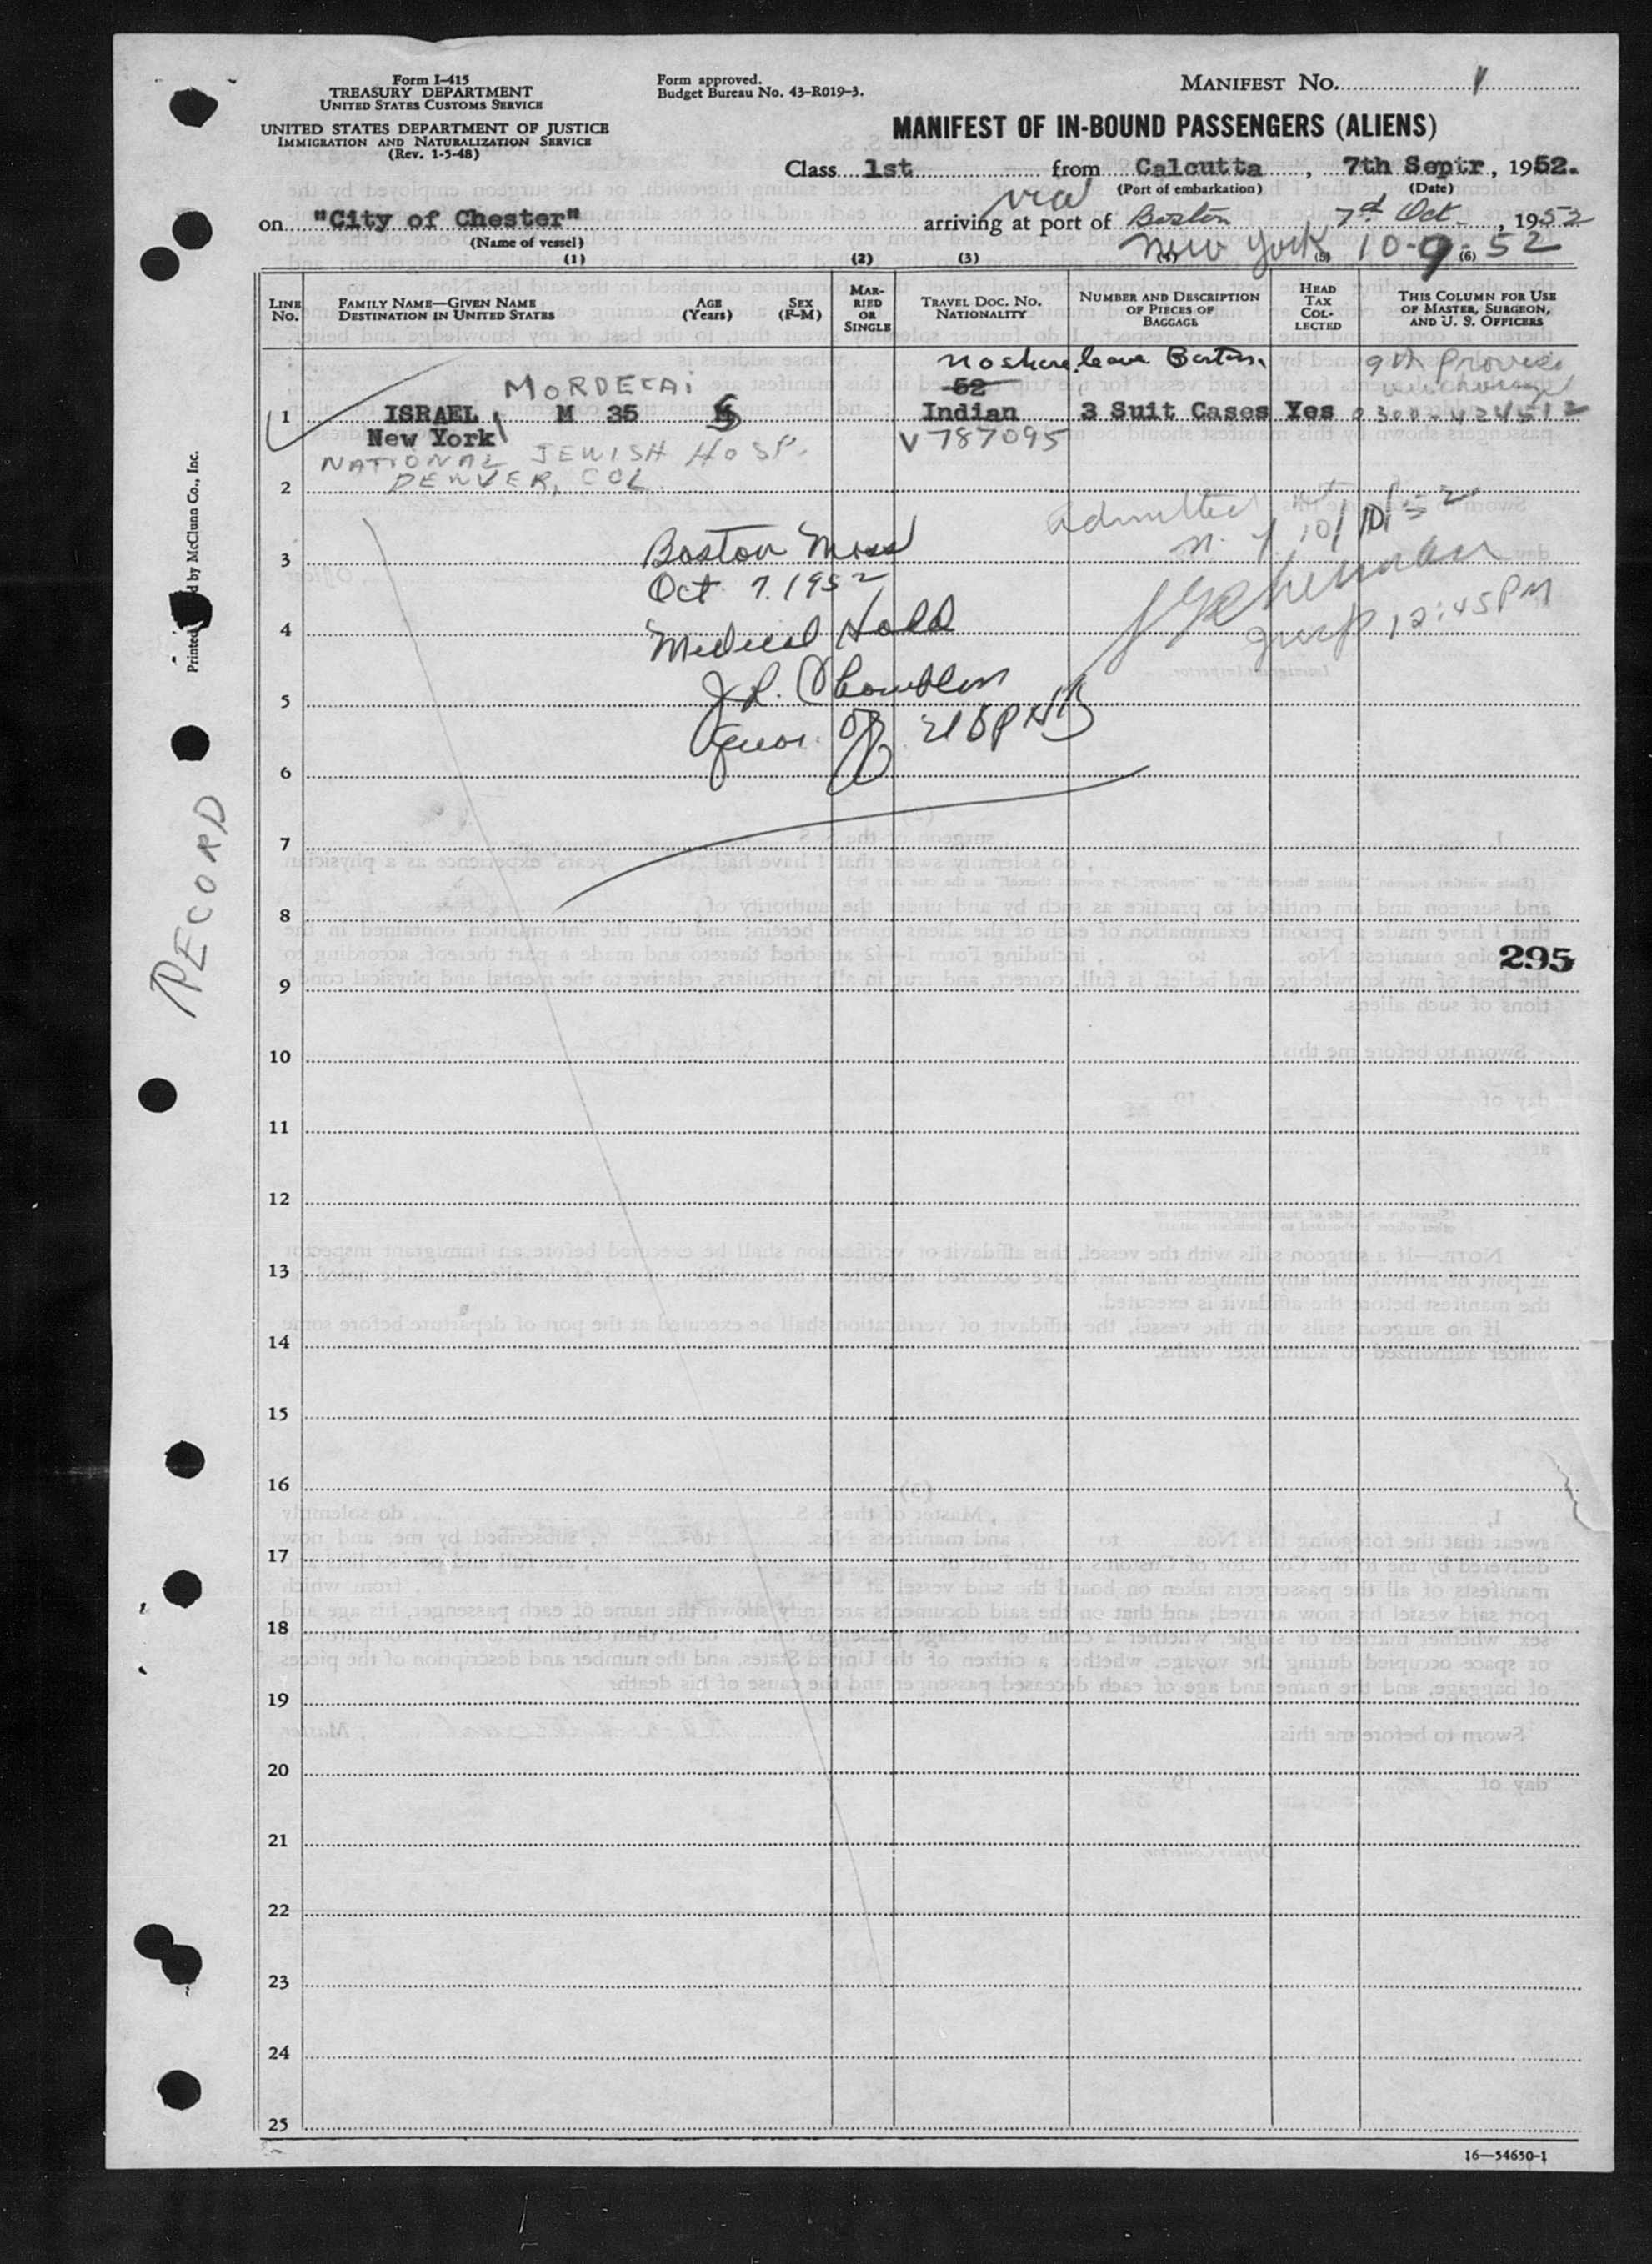 Form I-415
TREASURY DEPARTMENT
UNITED STATES CUSTOMS SERVICE
UNITED STATES DEPARTMENT OF JUSTICE
IMMIGRATION AND NATURALIZATION SERVICE
(Rev. 1-5-48)
Form approved.
Budget Bureau No. 43-R019-3.
MANIFEST No. 1
MANIFEST OF IN-BOUND PASSENGERS (ALIENS)
Class 1st from Calcutta, 7th Septr, 1952.
(Port of embarkation) (Date)
via
on "City of Chester" arriving at port of Boston 7th Oct, 1952
(Name of vessel)
New York 10-9-52
(1) (2) (3) (4) (5) (6)
LINE No.
FAMILY NAME—GIVEN NAME
DESTINATION IN UNITED STATES
AGE (Years)
SEX (F-M)
MARRIED OR SINGLE
TRAVEL DOC. No.
NATIONALITY
NUMBER AND DESCRIPTION OF PIECES OF BAGGAGE
HEAD TAX COLLECTED
THIS COLUMN FOR USE OF MASTER, SURGEON, AND U. S. OFFICERS
No shore leave Boston
9th Proviso
MORDECAI
52
1 ISRAEL M 35 S Indian 3 Suit Cases Yes 0300-424512
New York V 787095
NATIONAL JEWISH HOSP.
DENVER, COL.
2
admitted
3 Boston Mass
Oct 7. 1952
4 Medical Hold
12:45 PM
5
6
7
8
295
9
10
11
12
13
14
15
16
17
18
19
20
21
22
23
24
25
RECORD
by McClunn Co., Inc.
16—54650-1